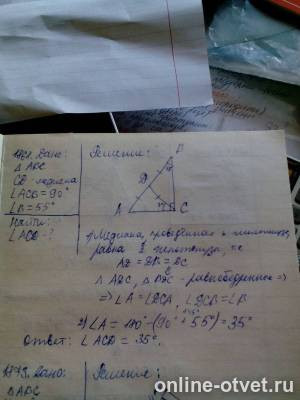 Дано:
△ABC
CD - медиана
∠ACB = 90°
∠B = 55°
Найти:
∠ACD - ?
Решение:
B
D
A
C
1) Медиана, проведённая к гипотенузе,
равна ½ гипотенузы, т.е.
AD = DB = DC
△ADC, △BDC - равнобедренное ⇒
⇒ ∠A = ∠DCA, ∠DCB = ∠B
2) ∠A = 180° - (90° + 55°) = 35°
Ответ: ∠ACD = 35°.
Дано:
△ABC
Решение:
online-otvet.ru